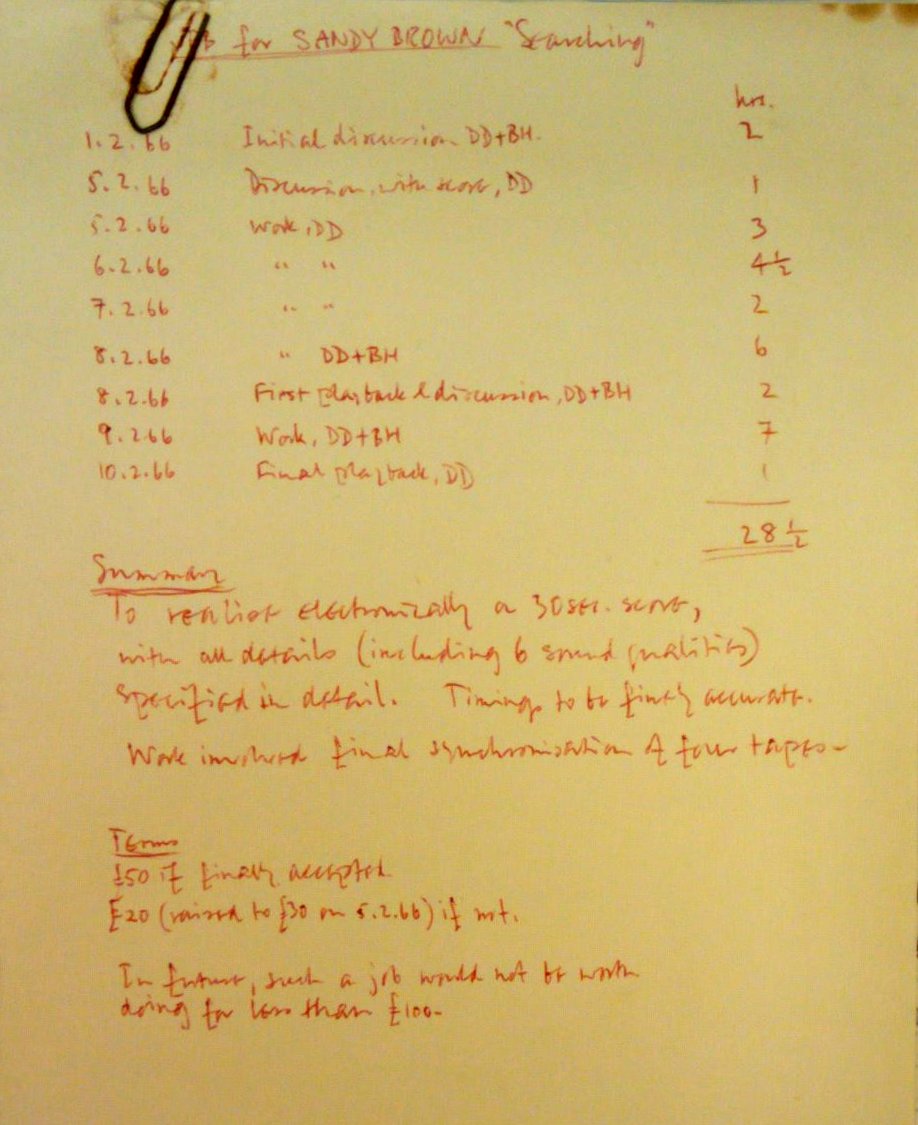 JOB for SANDY BROWN "Searching"
hrs.
1.2.66 Initial discussion DD+BH. 2
5.2.66 Discussion, with score, DD 1
5.2.66 Work, DD 3
6.2.66 " " 4½
7.2.66 " " 2
8.2.66 " DD+BH 6
8.2.66 First playback & discussion, DD+BH 2
9.2.66 Work, DD+BH 7
10.2.66 Final playback, DD 1
28½
Summary
To realise electronically a 30sec. score,
with all details (including 6 sound qualities)
specified in detail. Timings to be finely accurate.
Work involved final synchronisation of four tapes.
Terms
£50 if finally accepted
£20 (raised to £30 on 5.2.66) if not.
In future, such a job would not be worth
doing for less than £100.